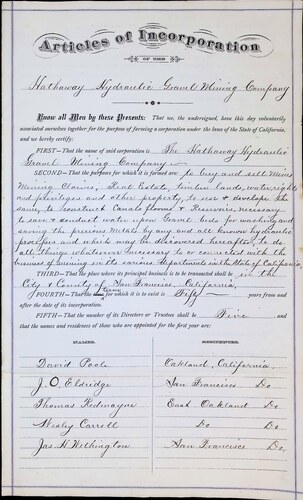 Articles of Incorporation
OF THE
Hathaway Hydraulic Gravel Mining Company
Know all Men by these Presents: That we, the undersigned, have this day voluntarily
associated ourselves together for the purpose of forming a corporation under the laws of the State of California,
and we hereby certify:
FIRST—That the name of said corporation is The Hathaway Hydraulic
Gravel Mining Company
SECOND—That the purposes for which it is formed are to buy and sell Mines
Mining Claims, Real Estate, timber lands, water rights
and privileges and other property, to use & develope the
same, to construct Canals, flumes & Reservoirs necessary
to save & conduct water upon Gravel beds for washing and
saving the precious Metals by any and all known hydraulic
process and which may be discovered hereafter, to do
all things whatsoever necessary to or connected with the
business of mining in its various departments in the State of California
THIRD—That the place where its principal business is to be transacted shall be in the
City & County of San Francisco, California,
FOURTH—That the term for which it is to exist is Fifty years from and
after the date of its incorporation.
FIFTH—That the number of its Directors or Trustees shall be Five and
that the names and residences of those who are appointed for the first year are:
NAMES. RESIDENCES.
David Poole Oakland, California
J. O. Eldridge San Francisco Do
Thomas Redmayne East Oakland Do
Wesley Carroll Do Do
Jas. H. Withington San Francisco Do